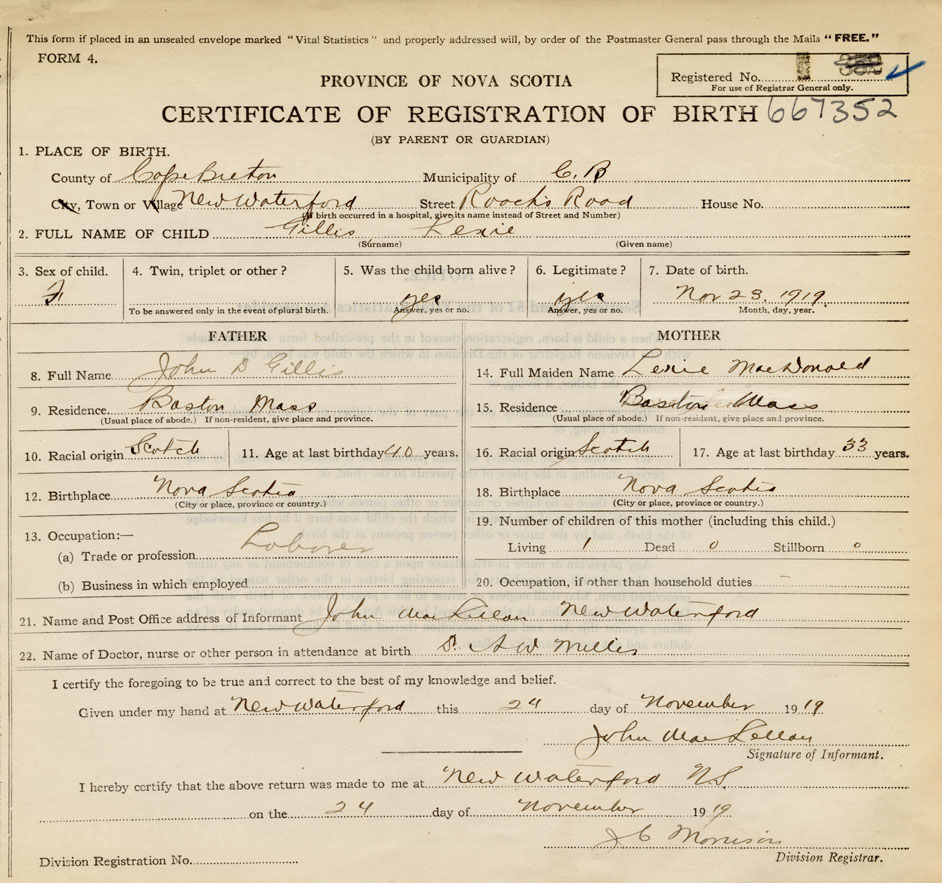 This form if placed in an unsealed envelope marked "Vital Statistics" and properly addressed will, by order of the Postmaster General pass through the Mails "FREE."
FORM 4.
Registered No. 352
For use of Registrar General only.
PROVINCE OF NOVA SCOTIA
CERTIFICATE OF REGISTRATION OF BIRTH 667352
(BY PARENT OR GUARDIAN)
1. PLACE OF BIRTH.
County of Cape Breton Municipality of C. B
City, Town or Village New Waterford Street Roachs Road House No.
(If birth occurred in a hospital, give its name instead of Street and Number)
2. FULL NAME OF CHILD Gillis Lexie
(Surname) (Given name)
3. Sex of child. 4. Twin, triplet or other? 5. Was the child born alive? 6. Legitimate? 7. Date of birth.
F yes yes Nov 23. 1919
To be answered only in the event of plural birth. Answer, yes or no. Answer, yes or no. Month, day, year.
FATHER MOTHER
8. Full Name John D Gillis 14. Full Maiden Name Lexie MacDonald
9. Residence. Boston Mass 15. Residence Boston Mass
(Usual place of abode.) If non-resident, give place and province. (Usual place of abode.) If non-resident, give place and province.
10. Racial origin Scotch 11. Age at last birthday 40 years. 16. Racial origin Scotch 17. Age at last birthday 33 years.
12. Birthplace Nova Scotia 18. Birthplace Nova Scotia
(City or place, province or country.) (City or place, province or country.)
13. Occupation:— 19. Number of children of this mother (including this child.)
(a) Trade or profession Laborer Living 1 Dead 0 Stillborn 0
(b) Business in which employed 20. Occupation, if other than household duties –
21. Name and Post Office address of Informant John MacLellan New Waterford
22. Name of Doctor, nurse or other person in attendance at birth Dr. A W Miller
I certify the foregoing to be true and correct to the best of my knowledge and belief.
Given under my hand at New Waterford this 24 day of November 1919
John MacLellan
Signature of Informant.
I hereby certify that the above return was made to me at New Waterford N.S.
on the 24 day of November 1919
J C Morrison
Division Registration No. Division Registrar.